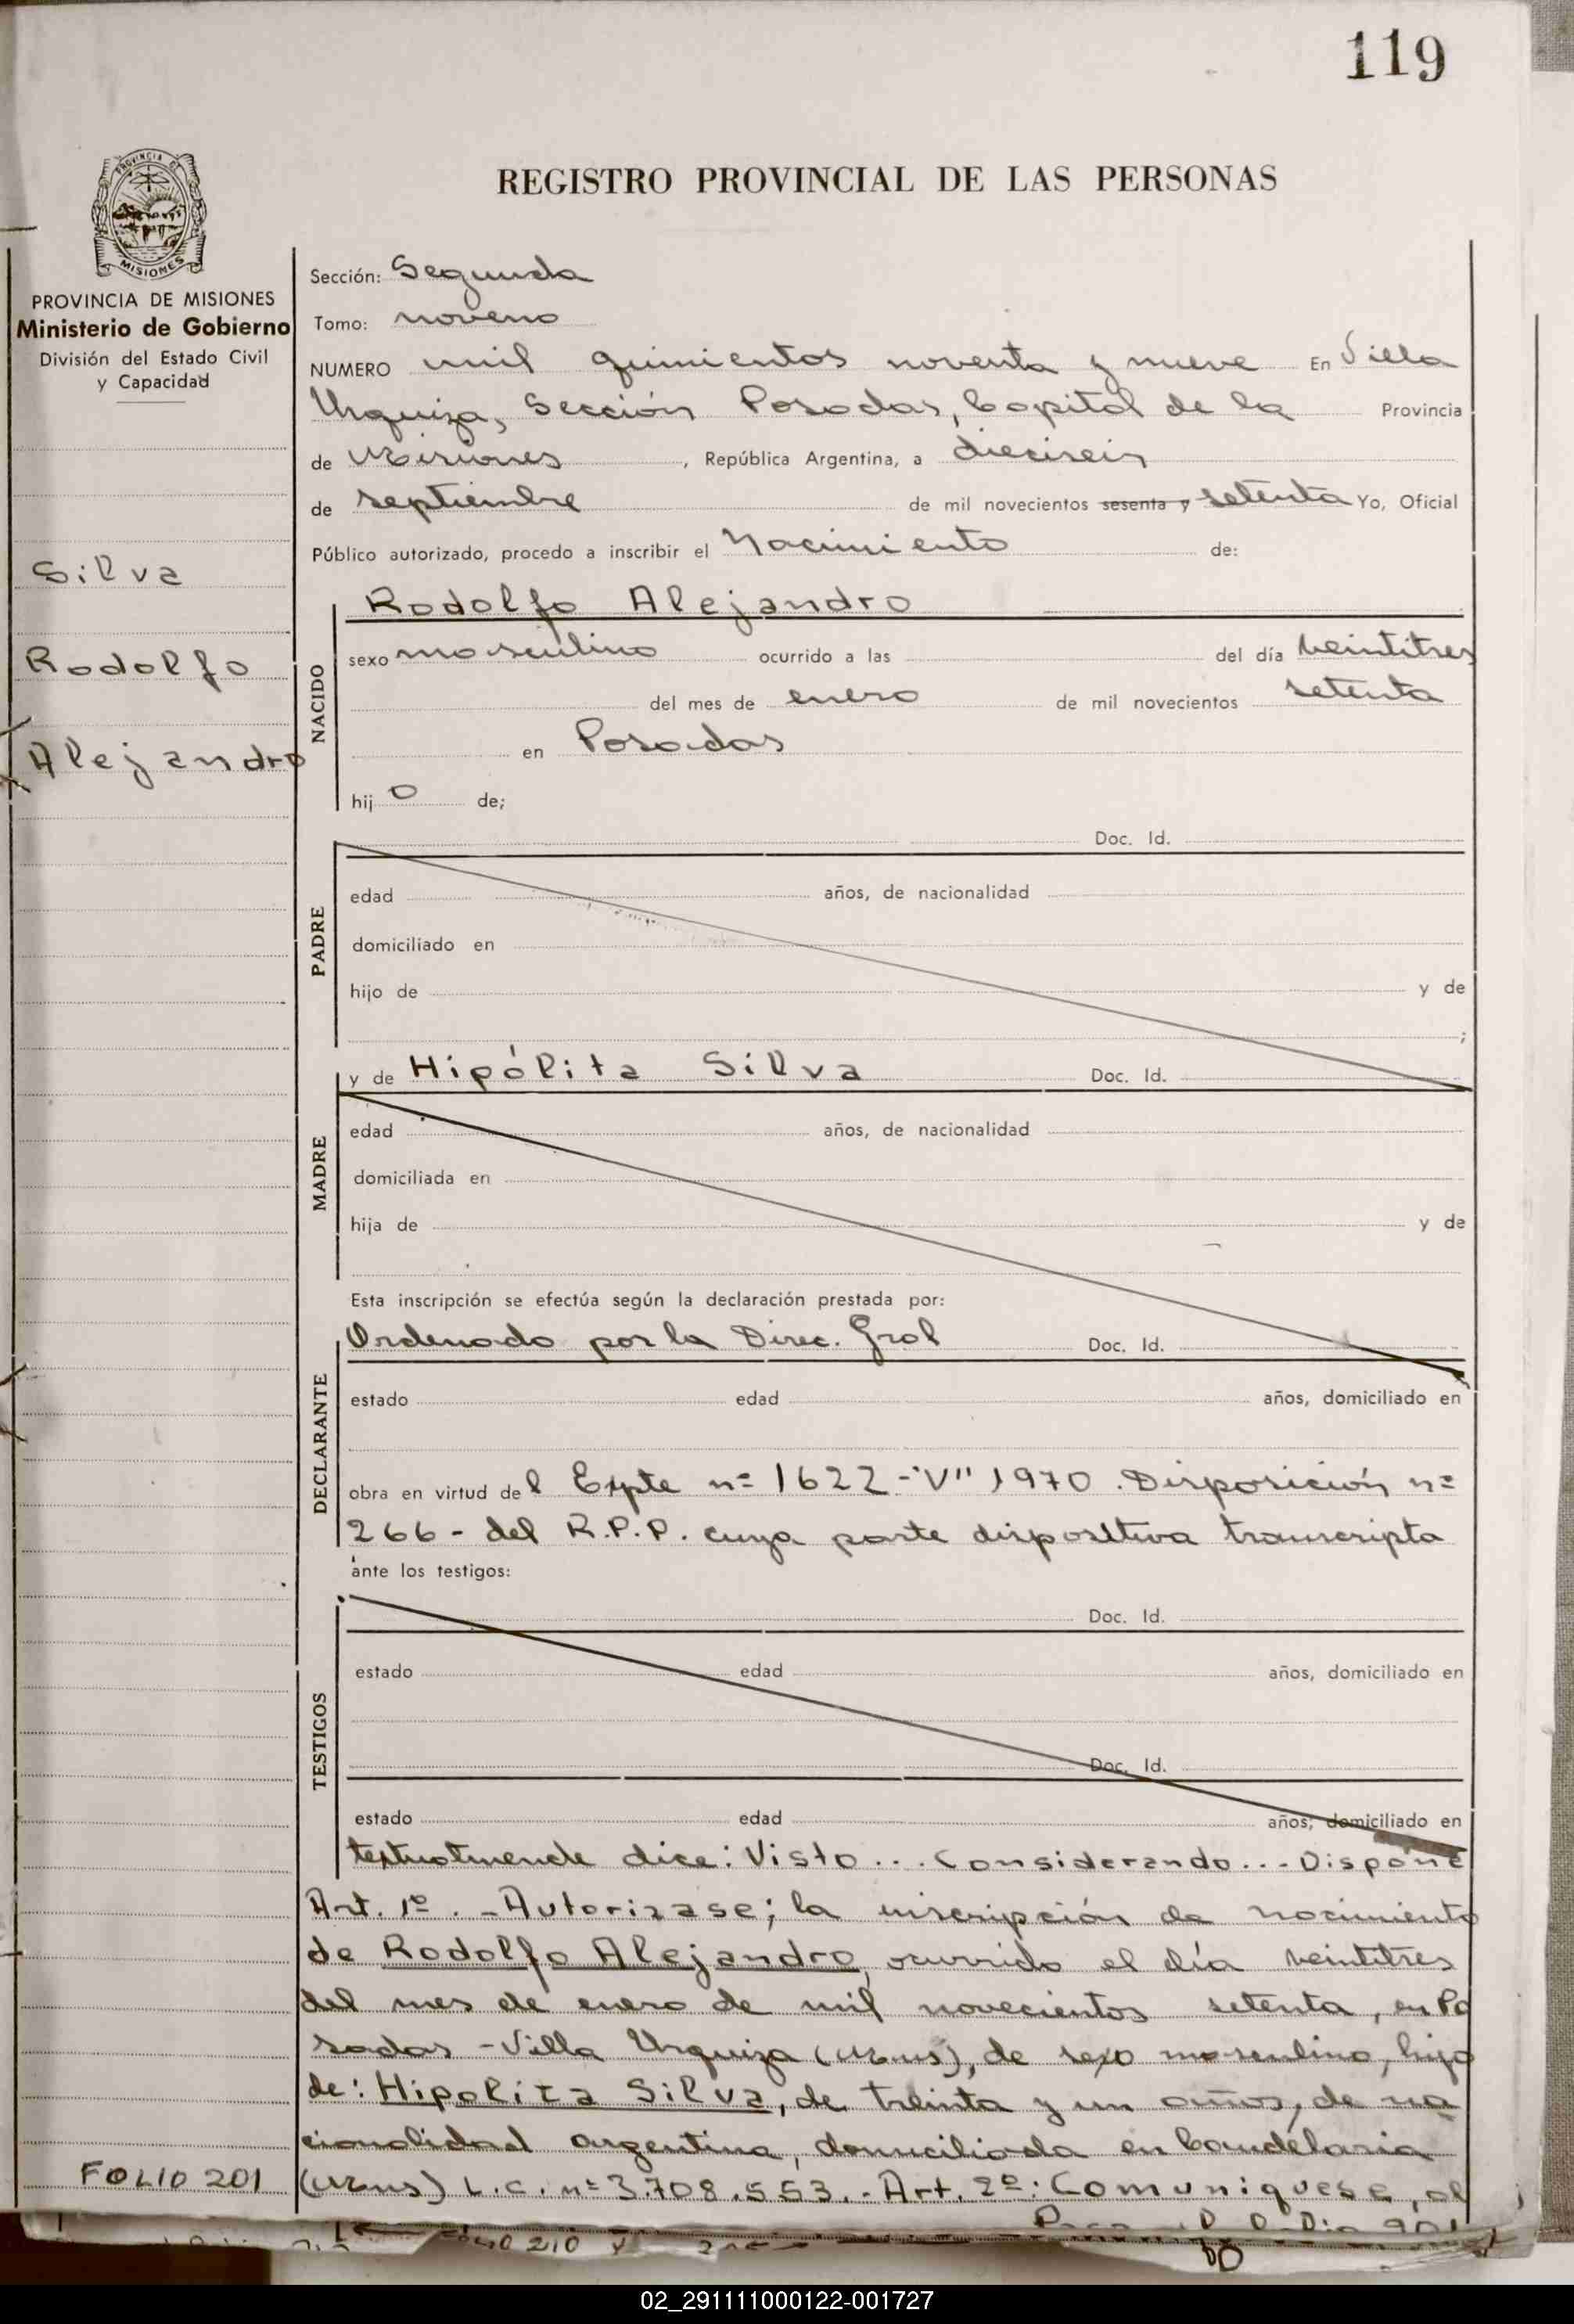 119
REGISTRO PROVINCIAL DE LAS PERSONAS
PROVINCIA DE MISIONES
PROVINCIA DE MISIONES
Ministerio de Gobierno
División del Estado Civil
y Capacidad
Silva
Rodolfo
Alejandro
FOLIO 201
Sección: Segunda
Tomo: noveno
NUMERO mil quinientos noventa y nueve En Villa
Urquiza, Sección Posadas, Capital de la Provincia
de Misiones, República Argentina, a dieciseis
de septiembre de mil novecientos sesenta y setenta Yo, Oficial
Público autorizado, procedo a inscribir el Nacimiento de:
NACIDO
Rodolfo Alejandro
sexo masculino ocurrido a las del día veintitres
del mes de enero de mil novecientos setenta
en Posadas
hij o de;
PADRE
Doc. Id.
edad años, de nacionalidad
domiciliado en
hijo de y de
;
MADRE
y de Hipólita Silva Doc. Id.
edad años, de nacionalidad
domiciliada en
hija de y de
Esta inscripción se efectúa según la declaración prestada por:
DECLARANTE
Ordenado por la Direc. Gral Doc. Id.
estado edad años, domiciliado en
obra en virtud del Expte nº 1622-"V" 1970. Disposición nº
266- del R.P.P. cuya parte dispositiva transcripta
ante los testigos:
TESTIGOS
Doc. Id.
estado edad años, domiciliado en
Doc. Id.
estado edad años, domiciliado en
textualmende dice: Visto... Considerando... Dispone
Art. 1º.-Autorizase; la inscripción de nacimiento
de Rodolfo Alejandro, ocurrido el día veintitres
del mes de enero de mil novecientos setenta, en Po
sadas-Villa Urquiza (Mnes), de sexo masculino, hijo
de: Hipolita Silva, de treinta y un años, de na
cionalidad argentina, domiciliada en Candelaria
(Mnes) L.C. nº 3.708.553.-Art. 2º: Comuniquese, al
02_291111000122-001727